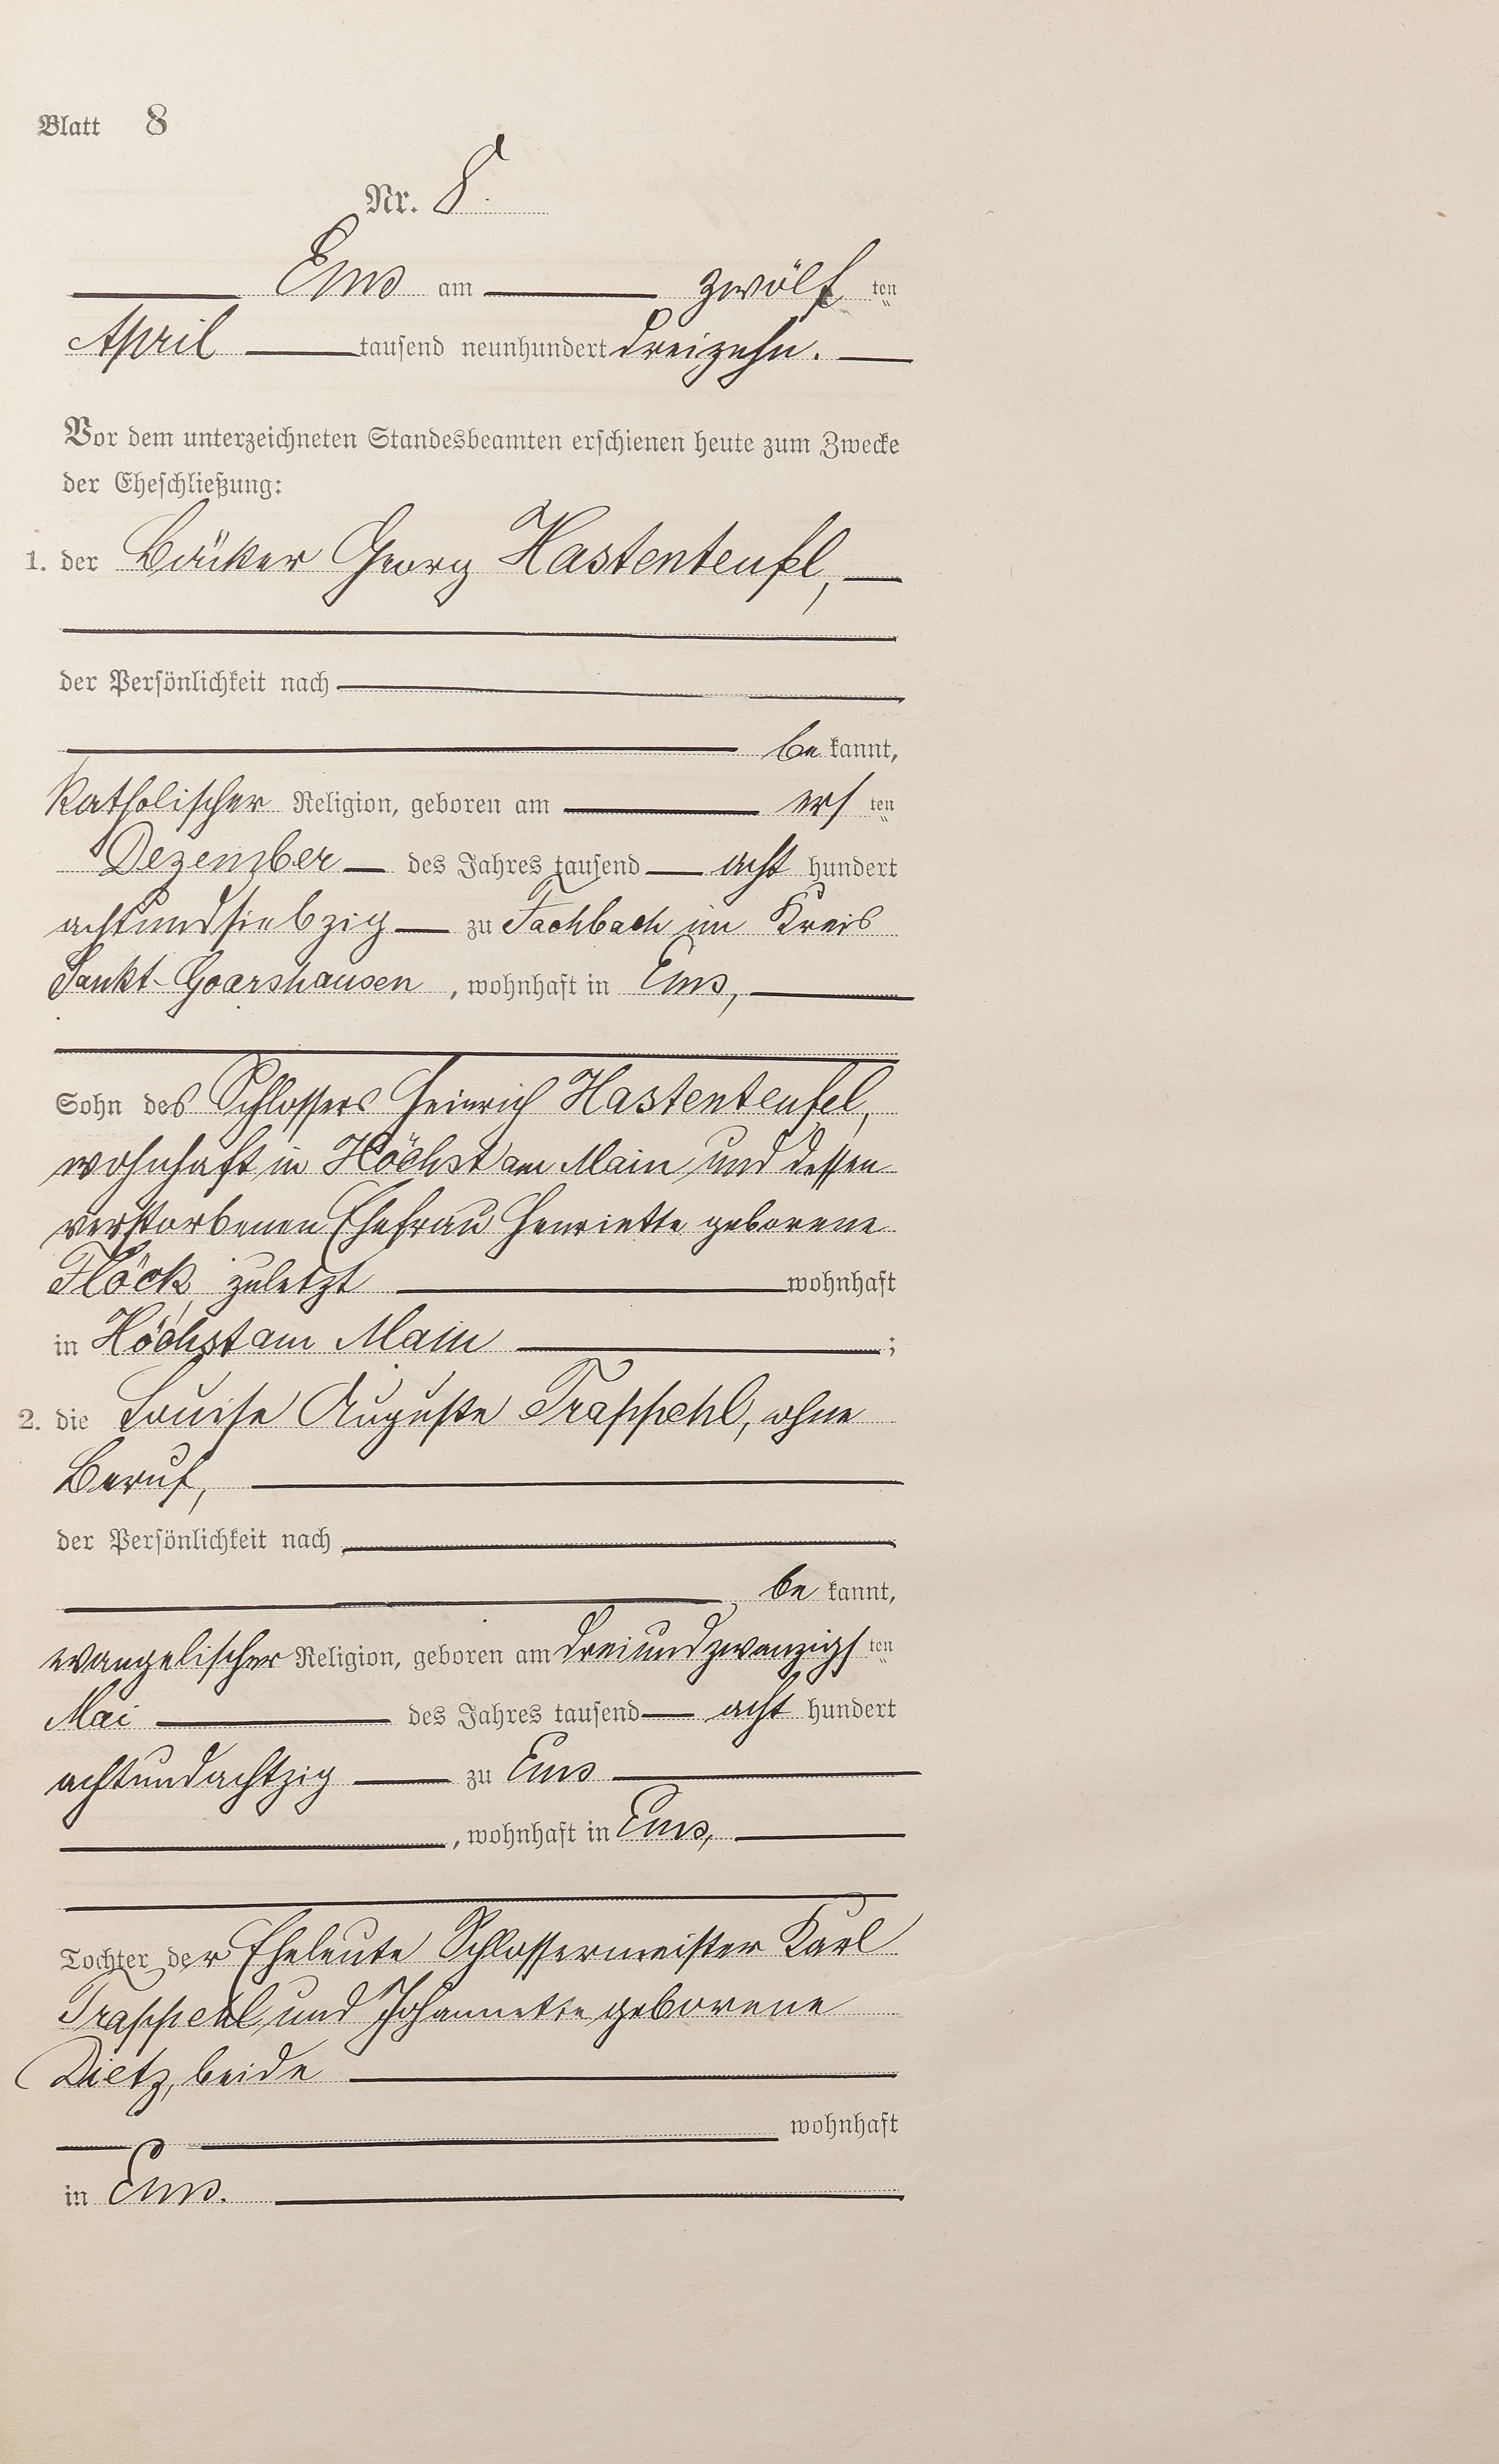 Blatt 8
Nr. 8.
Ems am zwölften
April tausend neunhundert dreizehn.
Vor dem unterzeichneten Standesbeamten erschienen heute zum Zwecke
der Eheschließung:
1. der Bäcker Georg Hastenteufel,
der Persönlichkeit nach
bekannt,
katholischer Religion, geboren am ersten
Dezember des Jahres tausend acht hundert
achtundsiebzig zu Fachbach im Kreis
Sankt-Goarshausen, wohnhaft in Ems,
Sohn des Schlossers Heinrich Hastenteufel,
wohnhaft in Höchst am Main und dessen
verstorbenen Ehefrau Henriette geborene
Flöck, zuletzt wohnhaft
in Höchst am Main ;
2. die Louise Auguste Trappehl, ohne
Beruf,
der Persönlichkeit nach
bekannt,
evangelischer Religion, geboren am dreiundzwanzigsten
Mai des Jahres tausend acht hundert
achtundachtzig zu Ems
, wohnhaft in Ems,
Tochter der Eheleute Schlossermeister Karl
Trappehl und Johannette geborene
Dietz, beide
wohnhaft
in Ems.